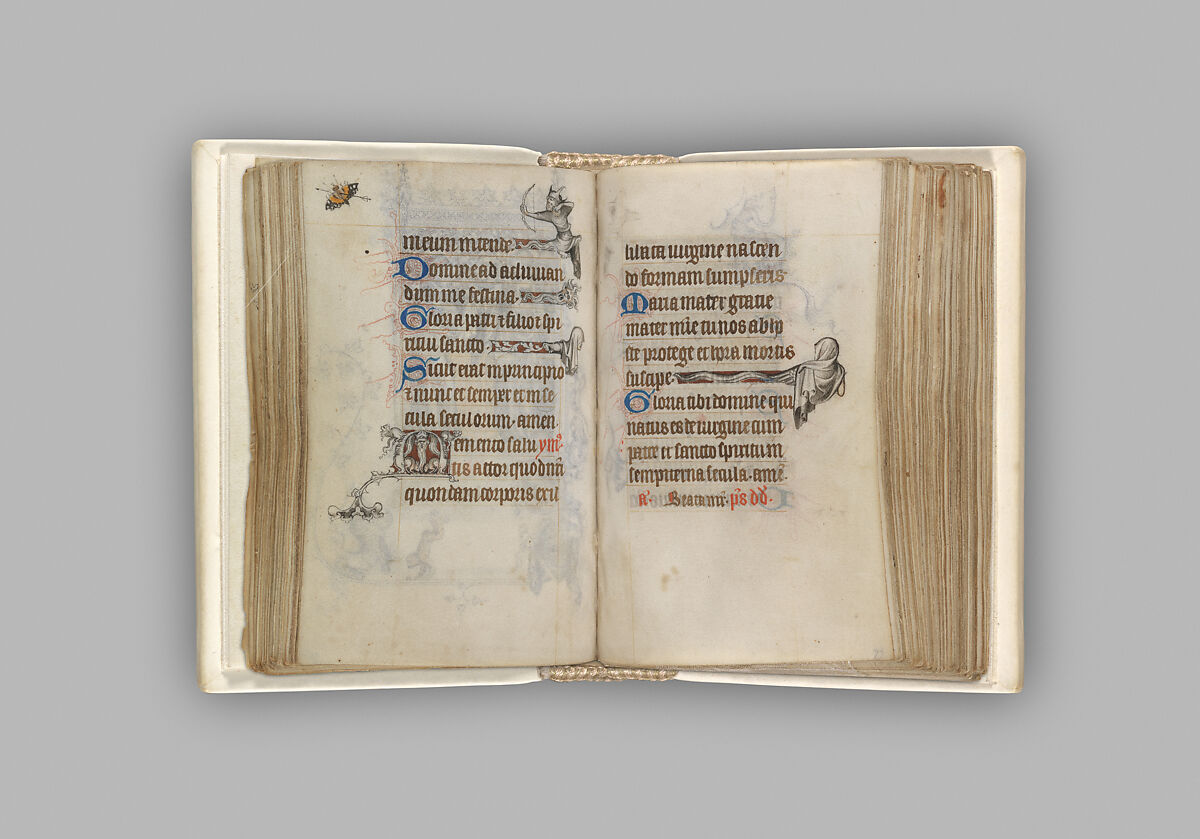 meum intende
Domine ad adiuuan
dum me festina
Gloria patri ⁊ filio ⁊ spi
ritui sancto
Sicut erat in principio
⁊ nunc et semper et in se
cula seculorum. amen.
Memento salu ymꝰ.
tis actor quod nr̄i
quondam corporis ex il
libata uirgine nascen
do formam sumpseris
Maria mater gratie
mater mīe tu nos ab ho
ste protege et hora mortis
suscipe.
Gloria tibi domine qui
natus es de uirgine cum
patre et sancto spiritum
sempiterna secula. amē.
Beata mr̄. pˢ dd.